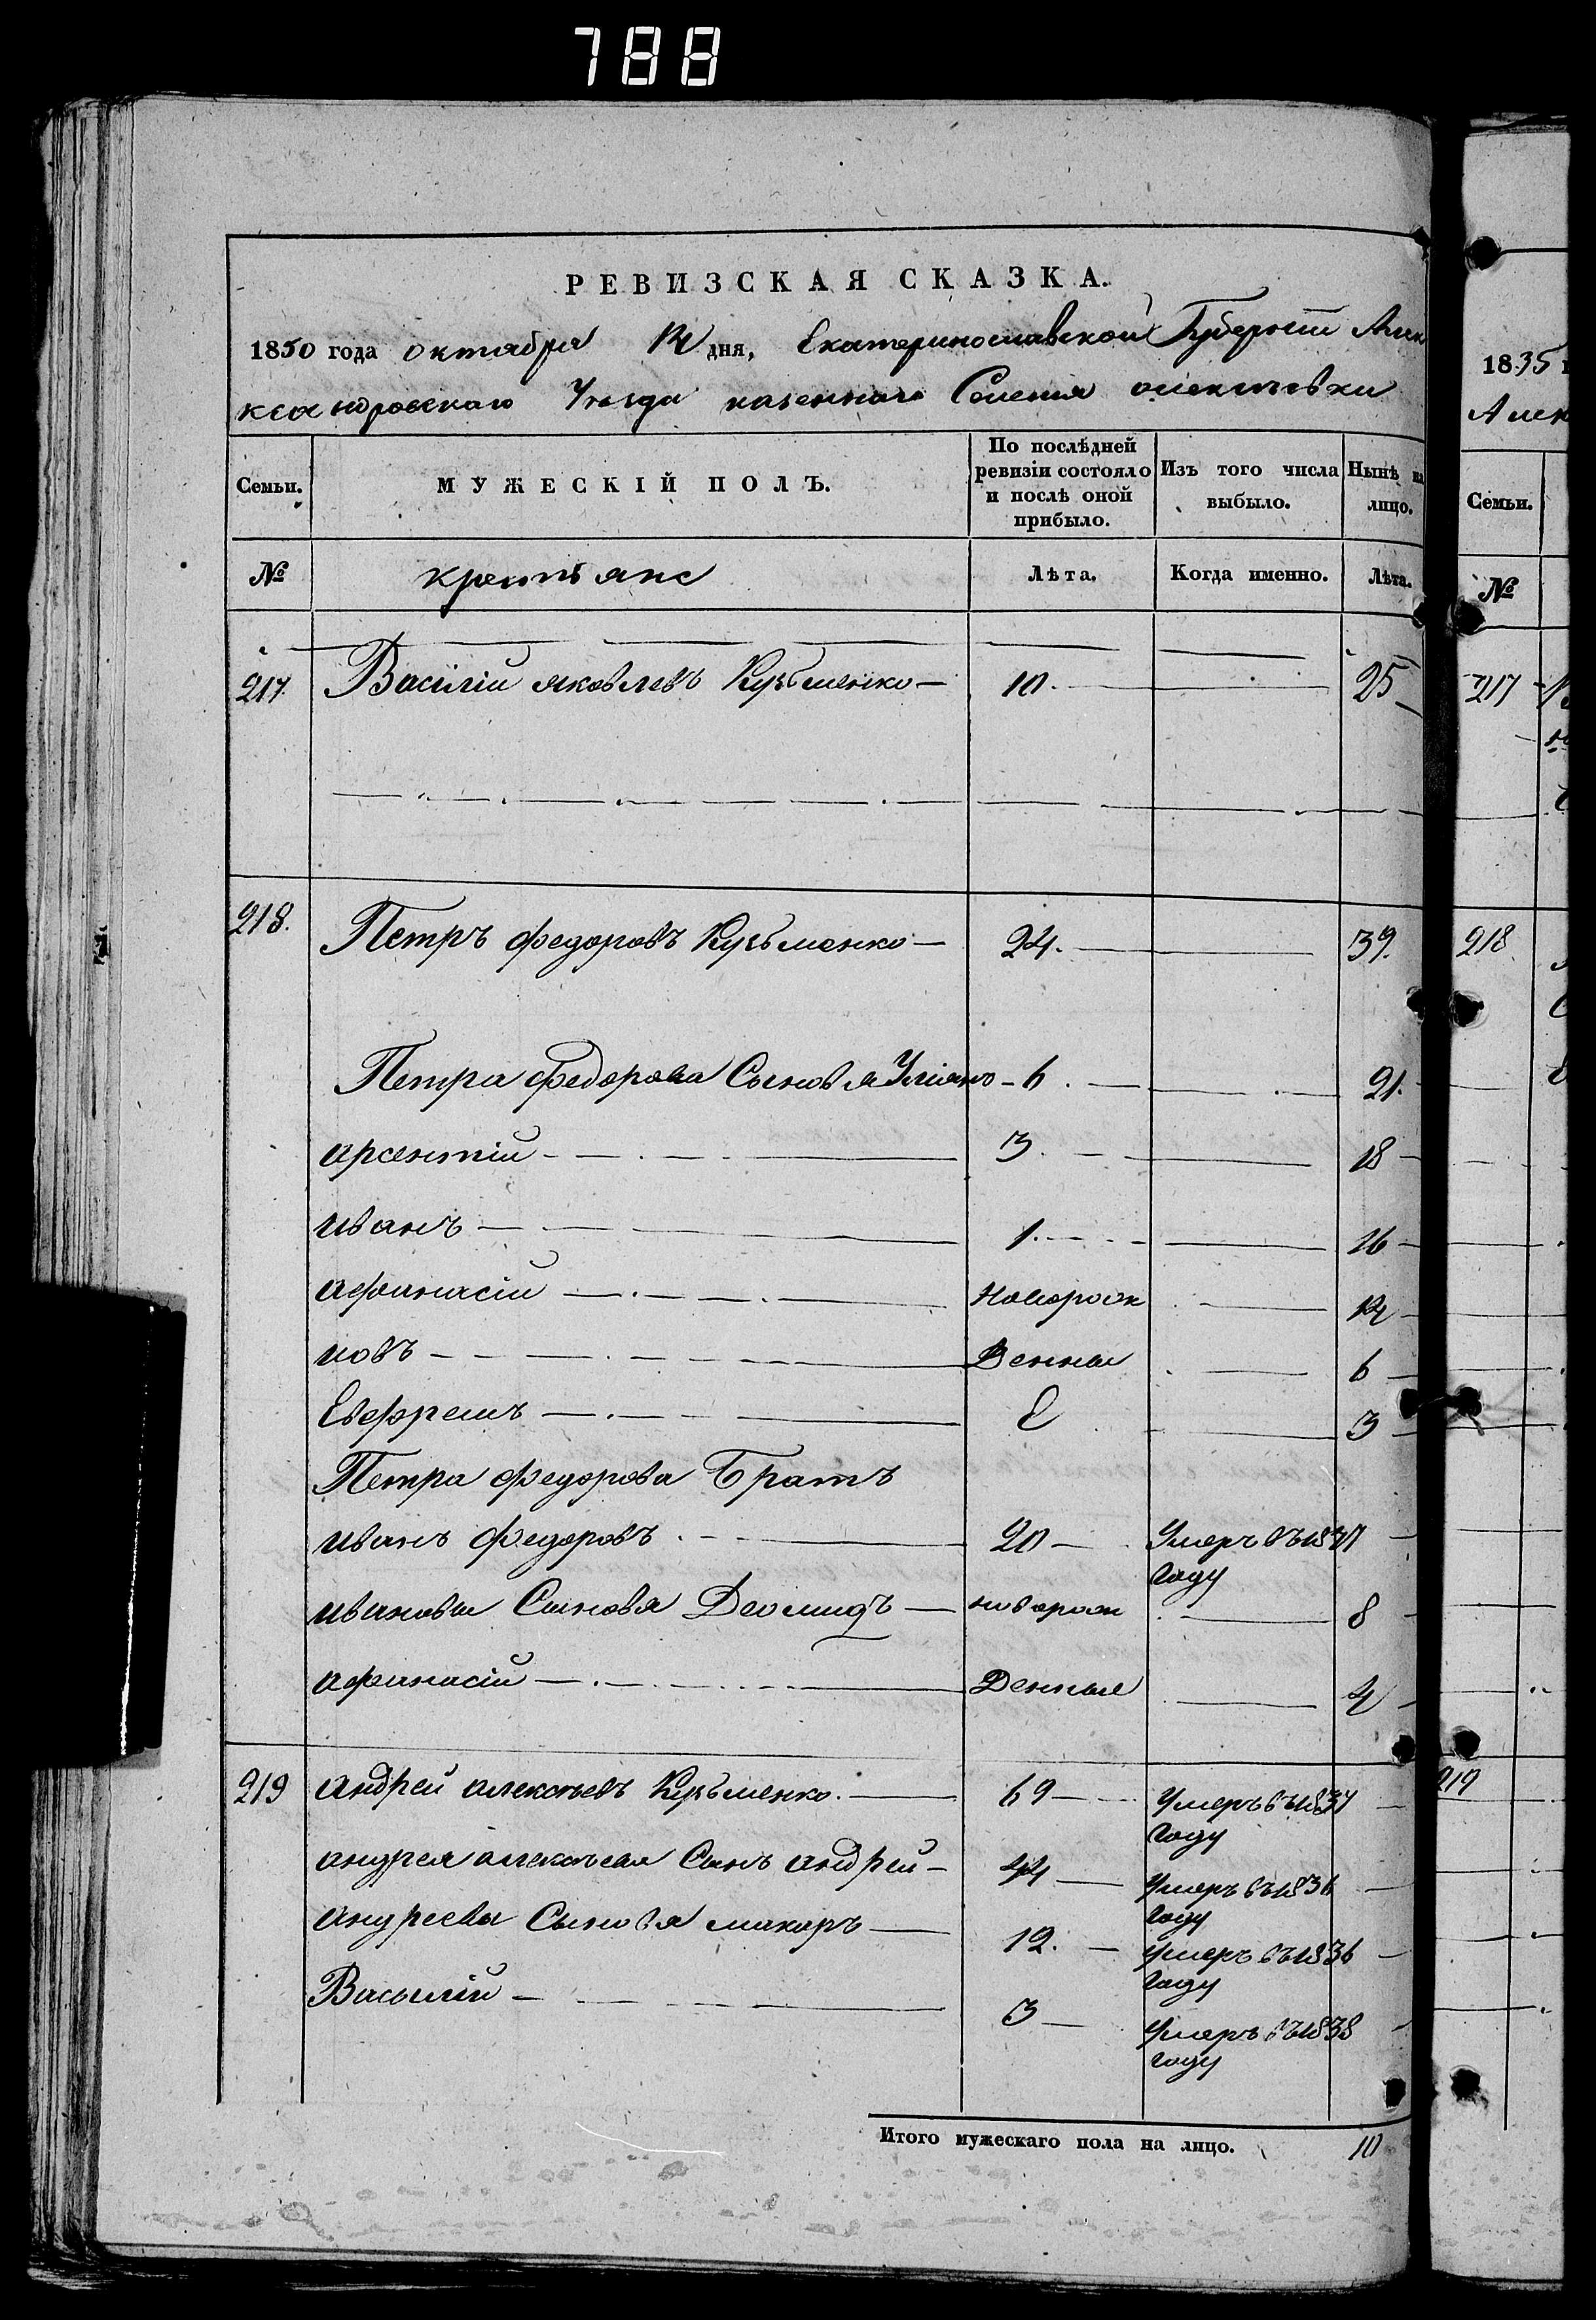 788
РЕВИЗСКАЯ СКАЗКА.
1850 года октября 14 дня, Екатеринославской Губернии Алек
ксандровскаго Уезда казеннаго Селения
Семьи. МУЖЕСКІЙ ПОЛЪ. По послѣдней ревизіи состояло и послѣ оной прибыло. Изъ того числа выбыло. Нынѣ на лицо.
№ крестьяне Лѣта. Когда именно. Лѣта.
217. Василій яковлевъ Кузьменко — 10. — 25
218. Петръ федоровъ Кузьменко — 24. — 39.
Петра федорова Сыновья Улияно — 6. — 21.
арсентій — 3. — 18
иванъ — 1. — 16
афанасій — Новорож — 14
иовъ — Денны — 6
Евфремъ — Е — 3
Петра федорова Братъ
иванъ федоровъ. — 20 — Умеръ въ 1847 году
иванова Сыновья Деомидъ — новорож — 8
афанасій — Денные — 4
219 андрей алексѣевъ Кузьменко. — 69 — Умеръ въ 1837 году
андрея алексѣева Сынъ андрей — 44 — Умеръ въ 1836 году
андреевы Сыновья макаръ — 12. — Умеръ въ 1836 году
Василій — 3 — Умеръ въ 1838 году
Итого мужескаго пола на лицо. 10
1835
Алек
Семьи.
№
217
218
219